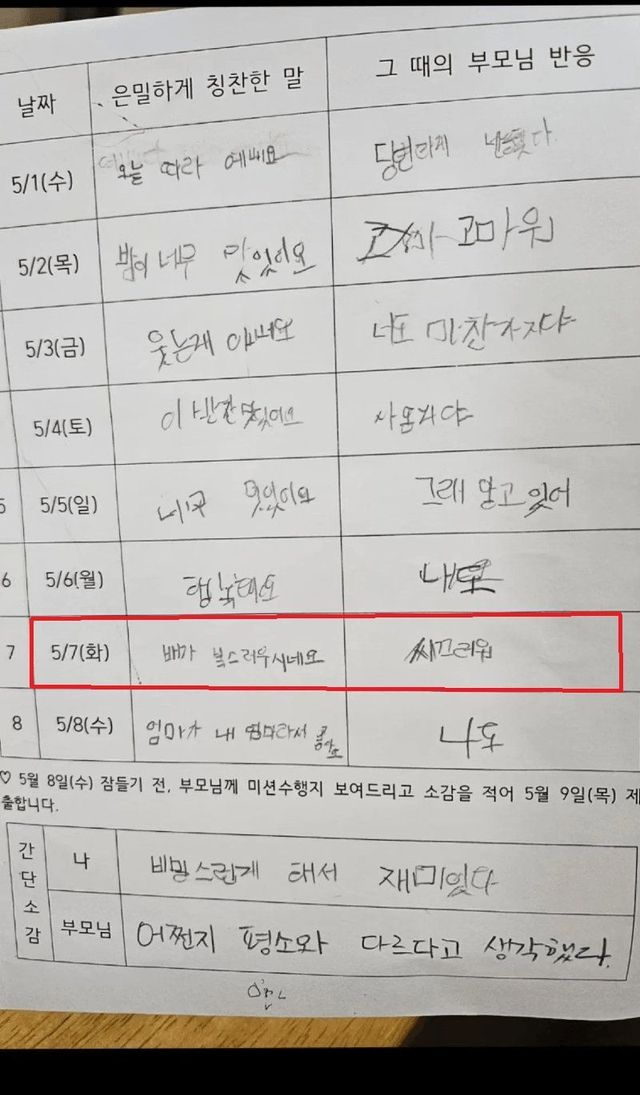 날짜 은밀하게 칭찬한 말 그 때의 부모님 반응
5/1(수) 오늘 따라 예뻐요 당번하게
5/2(목) 밥이 너무 맛있어요 고마워
5/3(금) 웃는게 이뻐요 너도 마찬가지야
5/4(토) 이 반찬 맛있어요
5/5(일) 멋있어요 그래 알고 있어
6 5/6(월) 내도
7 5/7(화) 배가 복스러우시네요 씨끄러워
8 5/8(수) 엄마가 내 엄마라서 나도
♡ 5월 8일(수) 잠들기 전, 부모님께 미션수행지 보여드리고 소감을 적어 5월 9일(목) 제
출합니다.
간단소감
나 비밀스럽게 해서 재미있다
부모님 어쩐지 평소와 다르다고 생각했다.